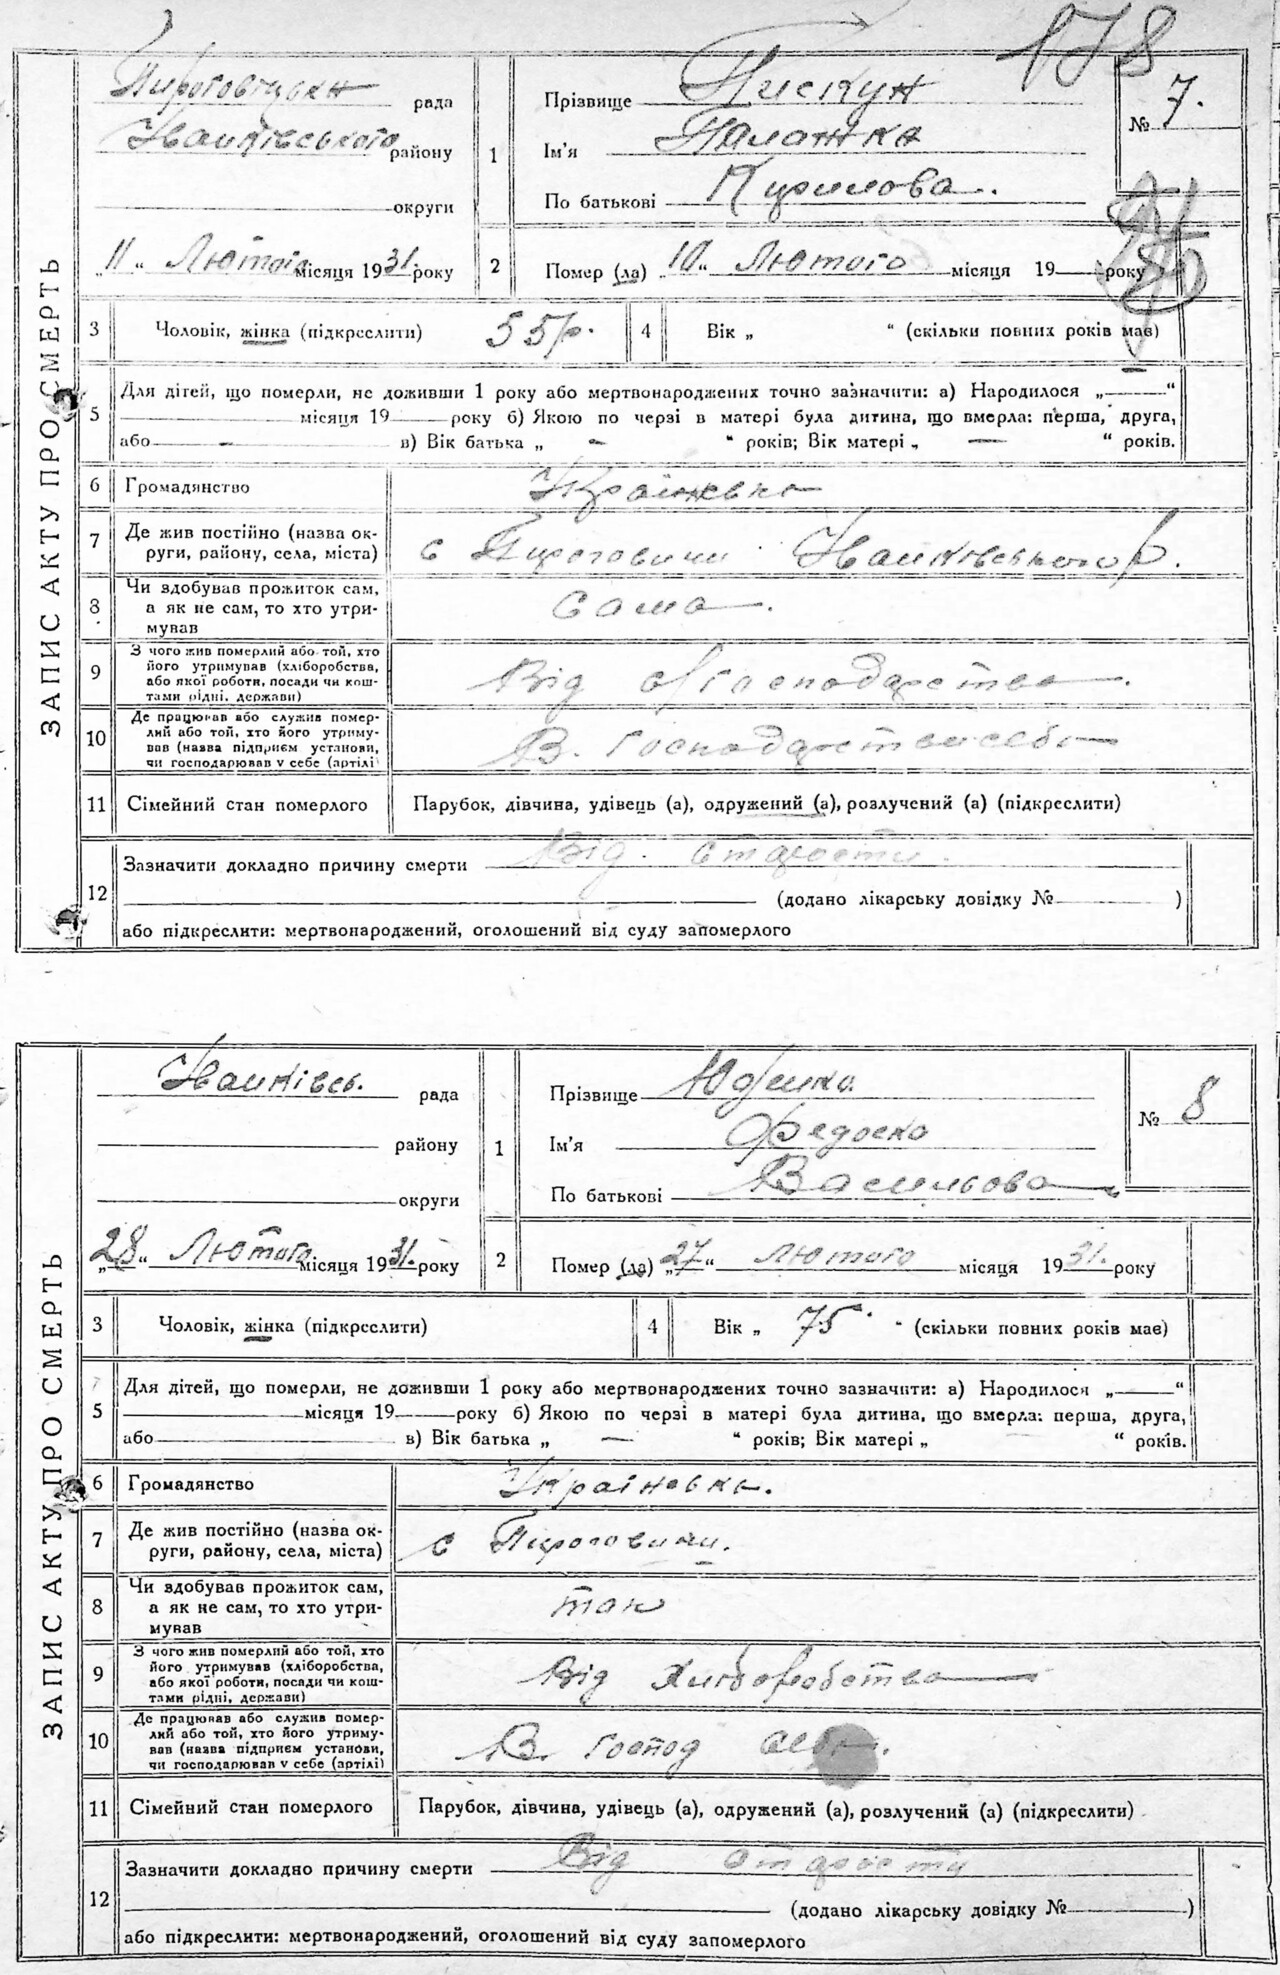 178
ЗАПИС АКТУ ПРО СМЕРТЬ
рада
Іванківського району
округи
„11“ Лютого місяця 1931. року
1
Прізвище Пискун
Ім'я Палажка
По батькові Кирилова.
№ 7.
2
Помер (ла) „10“ Лютого місяця 19 року
3
Чоловік, жінка (підкреслити) 55р.
4
Вік „ “ (скільки повних років має)
5
Для дітей, що померли, не доживши 1 року або мертвонароджених точно зазначити: а) Народилося „—“
місяця 19 року б) Якою по черзі в матері була дитина, що вмерла: перша, друга,
або — в) Вік батька „ — “ років; Вік матері „ — “ років.
6
Громадянство
Українська
7
Де жив постійно (назва ок-
руги, району, села, міста)
с Пироговичи Іванківського р.
8
Чи здобував прожиток сам,
а як не сам, то хто утри-
мував
Сама.
9
З чого жив померлий або той, хто
його утримував (хліборобства,
або якої роботи, посади чи кош-
тами рідні, держави)
Від с/господарства.
10
Де працював або служив помер-
лий або той, хто його утриму-
вав (назва підприєм установи,
чи господарював у себе (артілі)
В. господарстві себе
11
Сімейний стан померлого
Парубок, дівчина, удівець (а), одружений (а), розлучений (а) (підкреслити)
12
Зазначити докладно причину смерти Від старости.
(додано лікарську довідку № )
або підкреслити: мертвонароджений, оголошений від суду запомерлого
ЗАПИС АКТУ ПРО СМЕРТЬ
Іванківсь. рада
району
округи
„28“ Лютого місяця 1931. року
1
Прізвище
Ім'я Федоска
По батькові Васильова
№ 8
2
Помер (ла) „27“ Лютого місяця 1931. року
3
Чоловік, жінка (підкреслити)
4
Вік „ 75 “ (скільки повних років має)
5
Для дітей, що померли, не доживши 1 року або мертвонароджених точно зазначити: а) Народилося „—“
місяця 19 року б) Якою по черзі в матері була дитина, що вмерла: перша, друга,
або в) Вік батька „ — “ років; Вік матері „ “ років.
6
Громадянство
Українська.
7
Де жив постійно (назва ок-
руги, району, села, міста)
с Пироговичи.
8
Чи здобував прожиток сам,
а як не сам, то хто утри-
мував
так
9
З чого жив померлий або той, хто
його утримував (хліборобства,
або якої роботи, посади чи кош-
тами рідні, держави)
Від Хліборобства
10
Де працював або служив помер-
лий або той, хто його утриму-
вав (назва підприєм установи,
чи господарював у себе (артілі)
В. господ себе.
11
Сімейний стан померлого
Парубок, дівчина, удівець (а), одружений (а), розлучений (а) (підкреслити)
12
Зазначити докладно причину смерти Від старости
(додано лікарську довідку № )
або підкреслити: мертвонароджений, оголошений від суду запомерлого